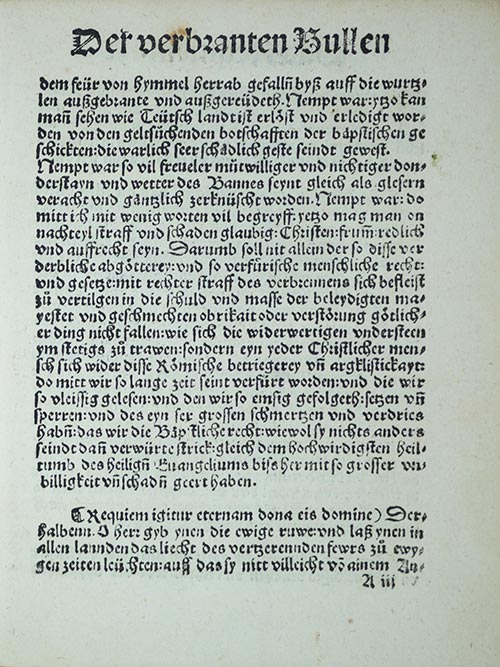 Der verbranten Bullen
dem feür von hymmel herrab gefalln̄ byß auff die wurtz⸗
len außgebrante vnd außgereüdeth. Nempt war: ytzo kan
man̄ sehen wie Teütsch landt ist erlöst vnd erledigt wor⸗
den von den geltsüchenden botschafften der bäpstischen ge
schickten: die warlich seer schädlich geste seindt gewest.
Nempt war so vil freueler mütwilliger vnd nichtiger don⸗
derstayn vnd wetter des Bannes seynt gleich als glesern
veracht vnd gäntzlich zerknüscht worden. Nempt war: do
mitt ich mit wenig worten vil begreyff: yetzo mag man on
nachteyl straff vnd schaden glaubig: Christen: frum̄: redlich
vnd auffrecht seyn. Darumb soll nit allem der so disse ver
derbliche abgötterey: vnd so verfürische menschliche recht:
vnd gesetz: mit rechter straff des verbrennens sich befleist
zů vertilgen in die schuld vnd masse der beleydigten ma⸗
yestet vnd geschmechten obrikait oder verstörung götlich⸗
er ding nicht fallen: wie sich die widerwertigen vndersteen
ym stetigs zů trawen: sondern eyn yeder Christlicher men⸗
sch sich wider disse Römische betriegerey vn̄ argklistickayt:
do mitt wir so lange zeit seint verfürt worden: vnd die wir
so vleissig gelesen: vnd den wir so emsig gefolgeth: setzen vn̄
sperren: vnd des eyn ser grossen schmertzen vnd verdries
habn̄: das wir die Bäpstliche recht: wiewol sy nichts anders
seindt dan̄ verwürte strick: gleich dem hochwirdigsten heil⸗
tumb des heilign̄ Euangeliums biss her mit so grosser vn⸗
billigkeit vn̄ schadn̄ geert haben.
❡ Requiem igitur eternam dona eis domine) Der⸗
halbenn. O her: gyb ynen die ewige ruwe: vnd laß ynen in
allen lannden das liecht des vertzerennden fewrs zu ewy⸗
gen zeiten leüchten: auff das sy nitt villeicht vō ainem An⸗
A iij